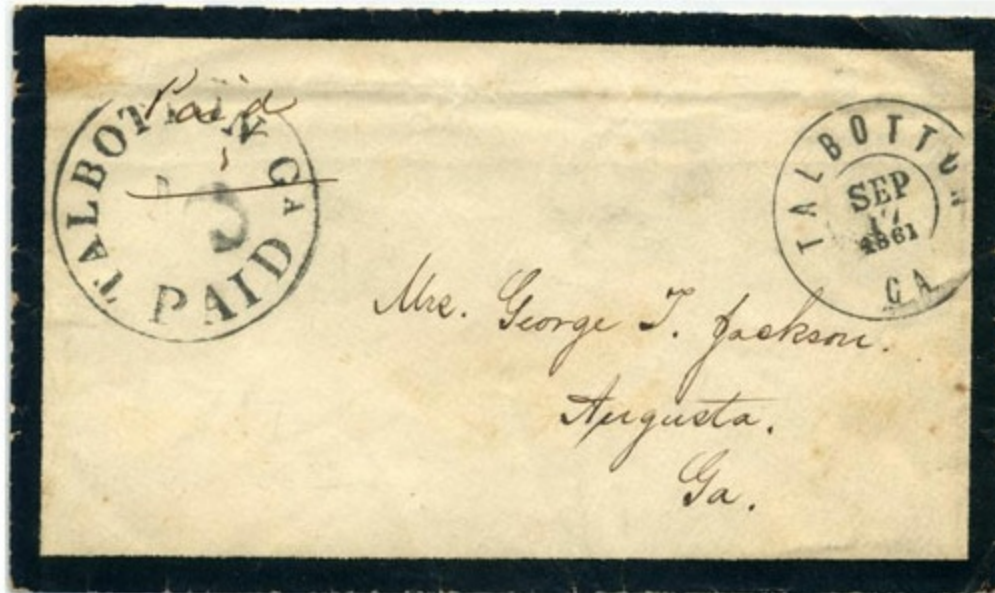 Paid
TALBOTTON GA
3
PAID
TALBOTTON
SEP
17
1861
GA
Mrs. George T. Jackson.
Augusta.
Ga.